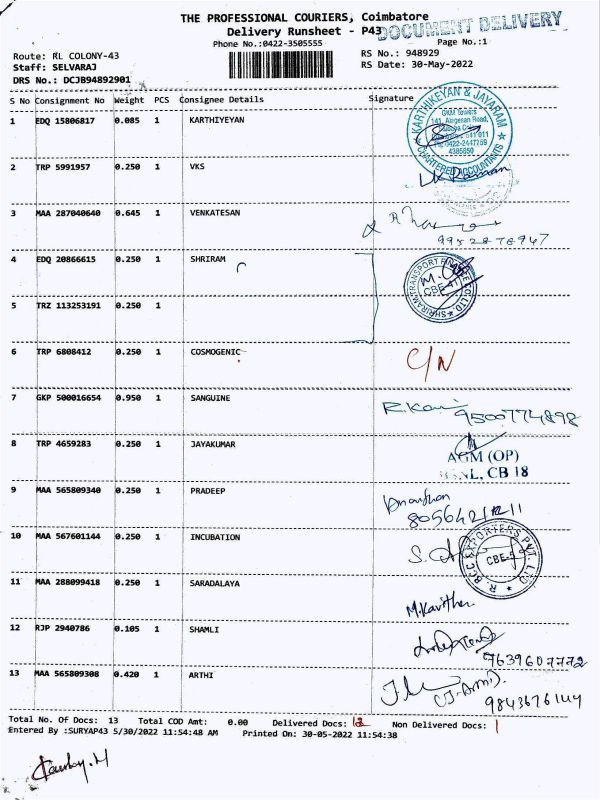 THE PROFESSIONAL COURIERS, Coimbatore
DOCUMENT DELIVERY
Delivery Runsheet - P43
Phone No.:0422-3505555
Page No.:1
Route: RL COLONY-43
RS No.: 948929
Staff: SELVARAJ
RS Date: 30-May-2022
DRS No.: DCJB94892901
S No Consignment No Weight PCS Consignee Details Signature
1 EDQ 15806817 0.085 1 KARTHIYEYAN
KARTHIKEYAN & JAYARAM
CHARTERED ACCOUNTANTS
GKM Towers
4385850
2 TRP 5991957 0.250 1 VKS
3 MAA 287040640 0.645 1 VENKATESAN
9952876947
4 EDQ 20866615 0.250 1 SHRIRAM
SHRIRAM TRANSPORT FINANCE CO. LTD.
CBE-41
5 TRZ 113253191 0.250 1
6 TRP 6808412 0.250 1 COSMOGENIC C/N
7 GKP 500016654 0.950 1 SANGUINE R.Kavi 9500774898
8 TRP 4659283 0.250 1 JAYAKUMAR
AGM (OP)
BSNL, CB 18
9 MAA 565809340 0.250 1 PRADEEP
10 MAA 567601144 0.250 1 INCUBATION
EXPORTERS PVT. LTD
11 MAA 288099418 0.250 1 SARADALAYA M.Kavitha
12 RJP 2940786 0.105 1 SHAMLI
7639607772
13 MAA 565809308 0.420 1 ARTHI
9843676144
Total No. Of Docs: 13 Total COD Amt: 0.00 Delivered Docs: 12 Non Delivered Docs: 1
Entered By :SURYAP43 5/30/2022 11:54:48 AM Printed On: 30-05-2022 11:54:38